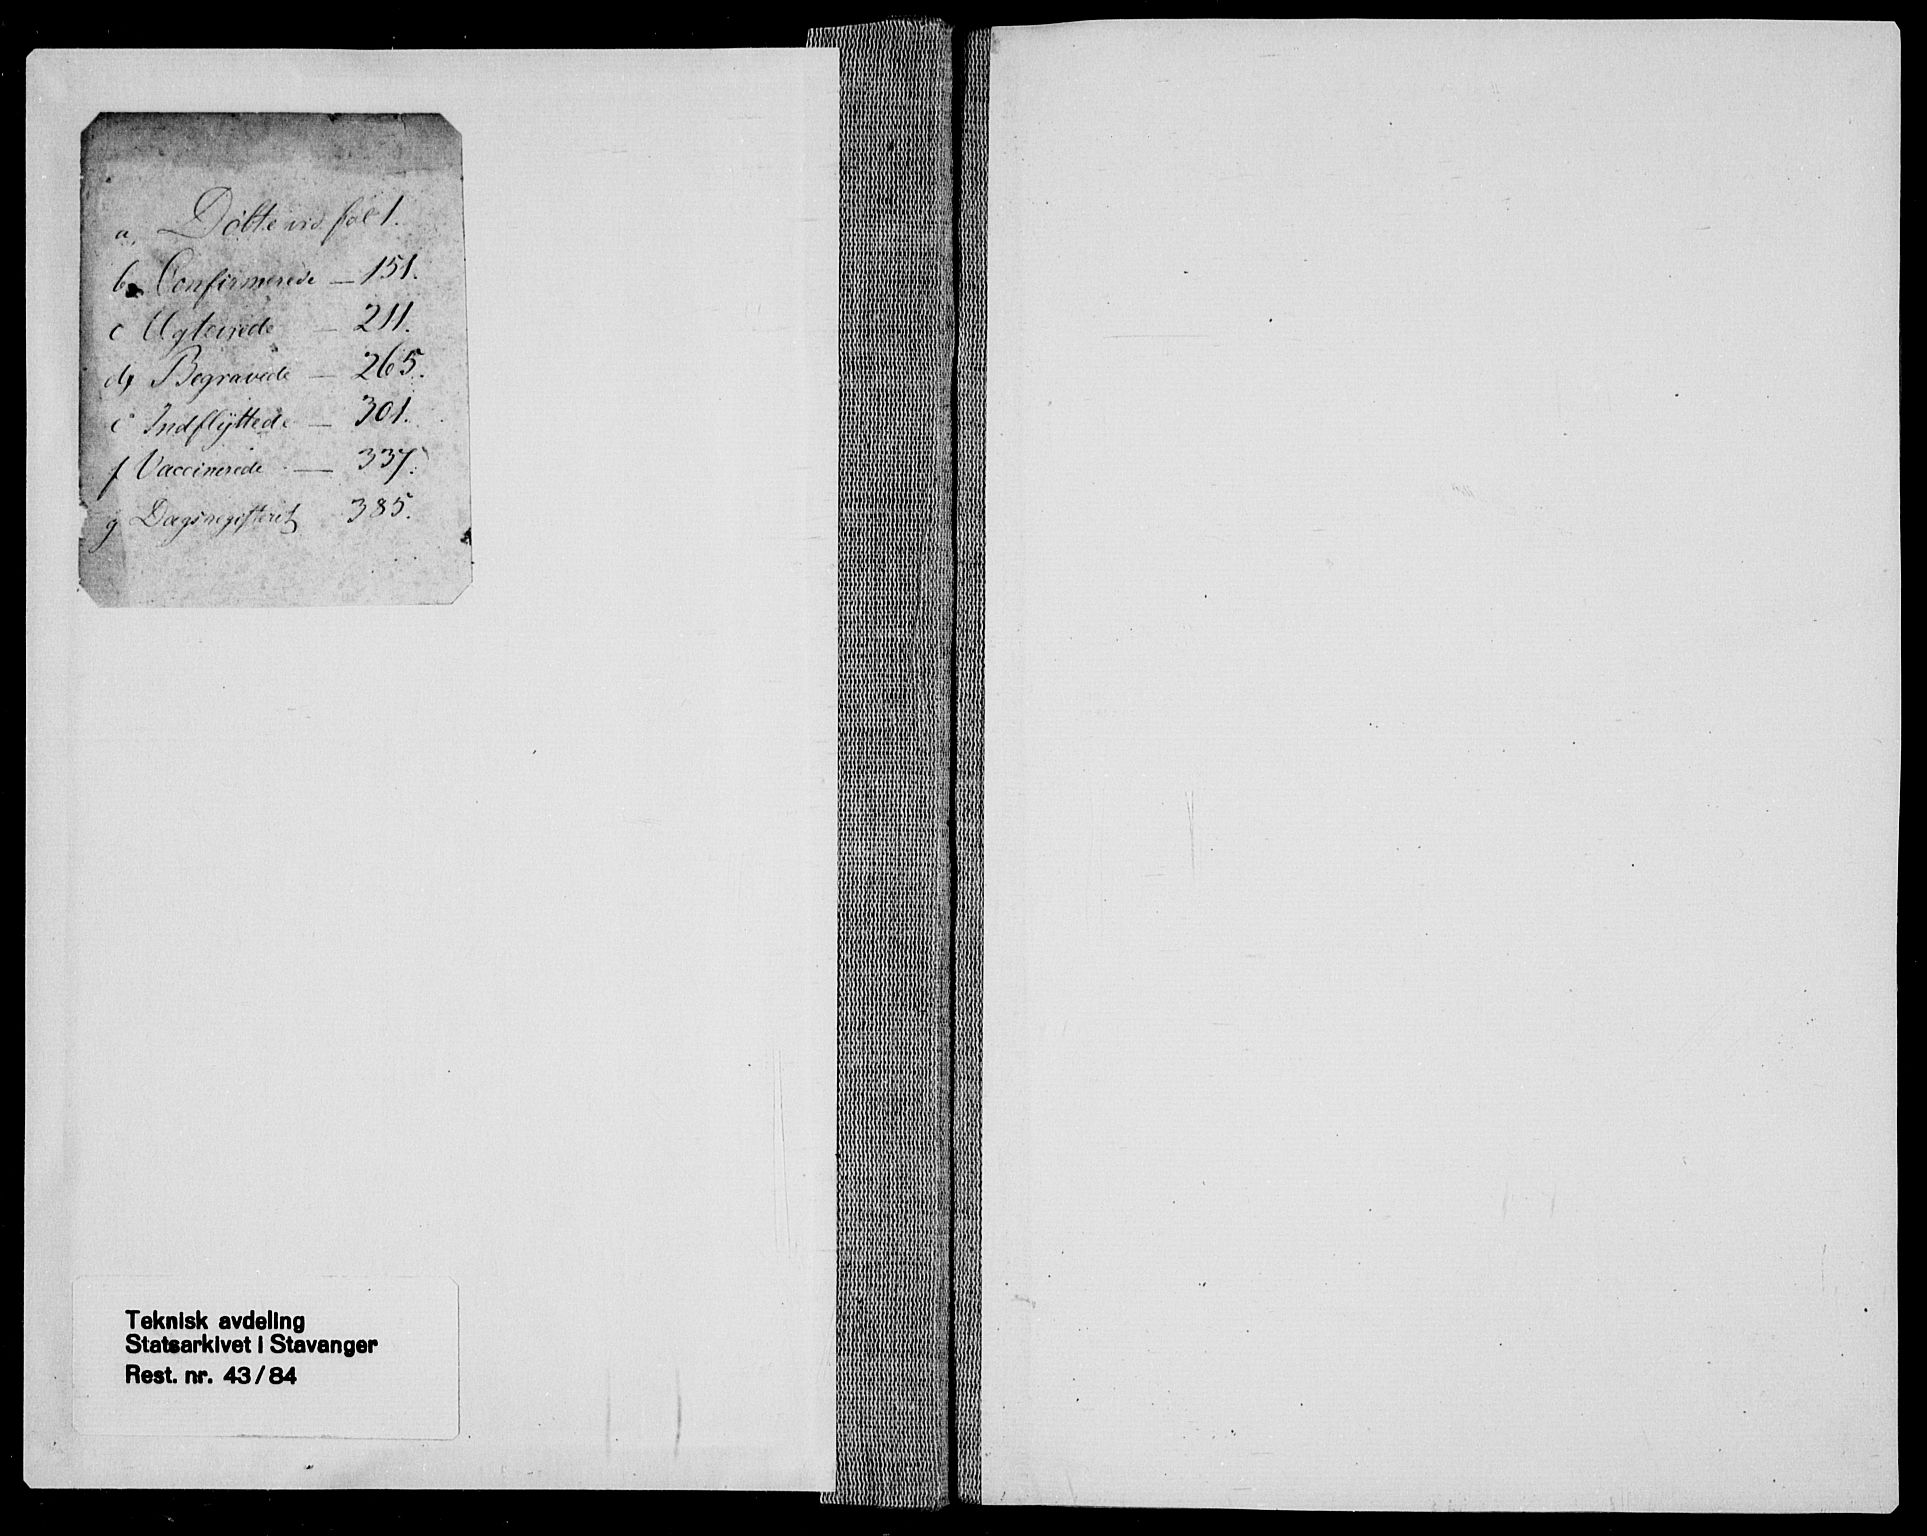 a, Døbte vid fol 1.
b, Confirmerede — 151.
c Ugteviede — 211.
d, Begravede — 265.
e Indflÿttede — 301.
f Vaccinerede — 337.
g Dagsregisteret 385.
Teknisk avdeling
Statsarkivet i Stavanger
Rest. nr. 43/84